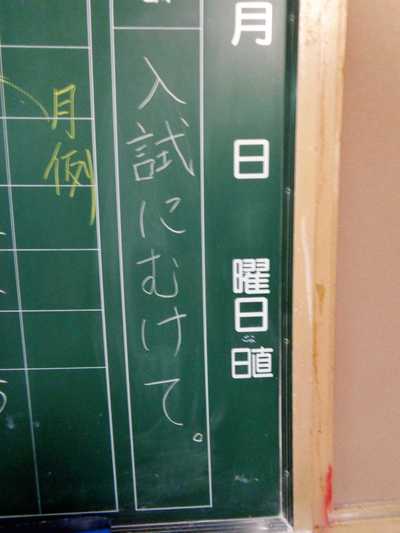 月
日
曜日
日直
入試にむけて。
月例